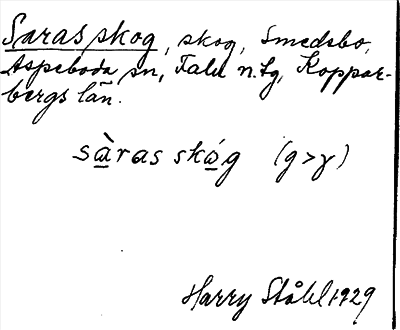 Saras skog, skog, Smedsbo,
Aspeboda sn, Falu n. tg, Koppar-
bergs län.
sàras skóg (g>γ)
Harry Ståhl 1929